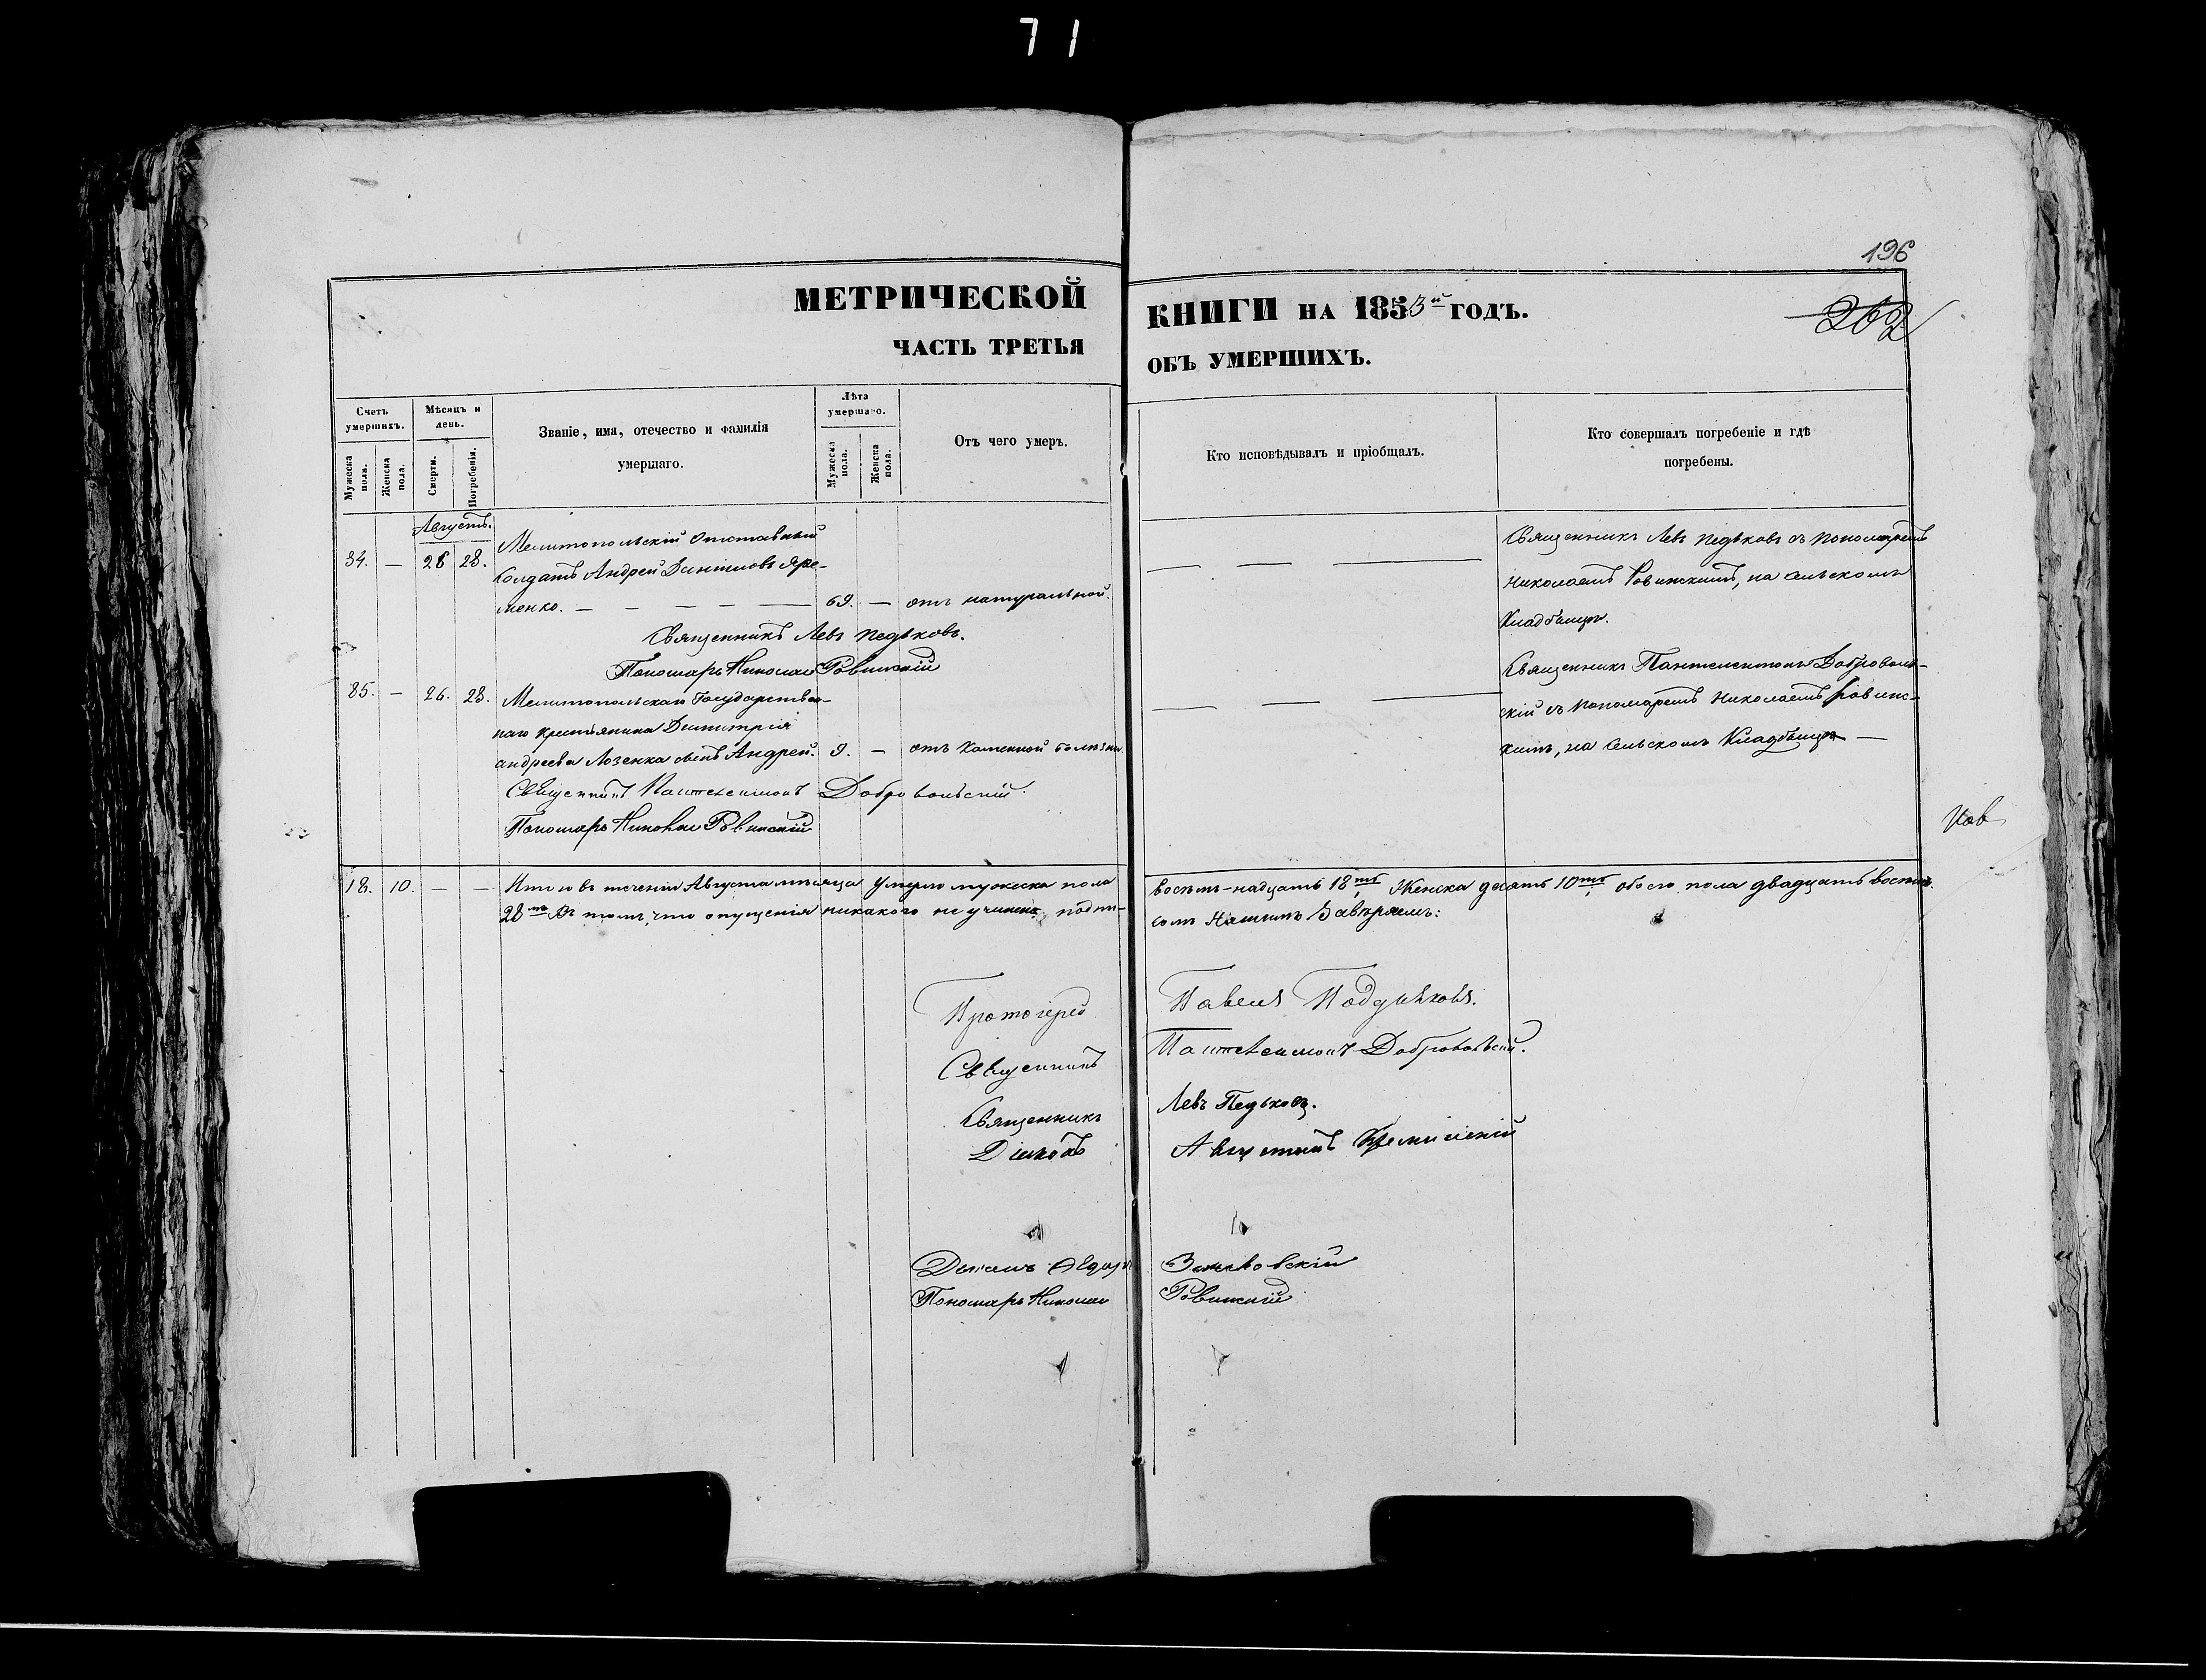 71
196
262
МЕТРИЧЕСКОЙ
КНИГИ НА 1853й ГОДЪ.
ЧАСТЬ ТРЕТЬЯ
ОБЪ УМЕРШИХЪ.
Счетъ умершихъ.
Мужеска пола.
Женска пола.
Мѣсяцъ и день.
Смерти.
Погребенія.
Званіе, имя, отечество и фамилія
умершаго.
Лѣта умершаго.
Мужеска пола.
Женска пола.
Отъ чего умеръ.
Кто исповѣдывалъ и пріобщалъ.
Кто совершалъ погребеніе и гдѣ
погребены.
Августъ.
84. — 26 28.
Мелитопольскій Отставный
Солдатъ Андрей Даніиловъ Яре-
менко. — — — — — 69. — отъ натуральной.
Священникъ Левъ Педьковъ.
Пономарь Николай Ровинскій
Священникъ Левъ Педьковъ съ Пономаремъ
Николаемъ Ровинскимъ, на сельскомъ
Кладбищѣ.
85. — 26. 28.
Мелитопольскаго Государствен-
наго крестьянина Димитрія
Андреева Лозенка сынъ Андрей. 9. — отъ Каменной болѣзни.
Священникъ Пантелеимонъ Добровольскій.
Пономарь Николай Ровинскій
Священникъ Пантелеимонъ Доброволь-
скій съ Пономаремъ Николаемъ Ровинс-
кимъ, на сельскомъ Кладбищѣ —
18. 10. — —
Итого въ теченіи Августа мѣсяца умерло мужеска пола
восѣмь-надцать 18ть, Женска десять 10ть, обоего пола двадцать восѣмь.
28мь Въ томъ, что опущенія никакого не учинено, подпи-
сомъ Нашимъ Завѣряемъ:
Протоіерей Павелъ
Священникъ Пантелеимонъ Добровольскій.
Священникъ Левъ Педьковъ.
Діяконъ Августинъ
Дьячекъ
Пономарь Николай Ровинскій